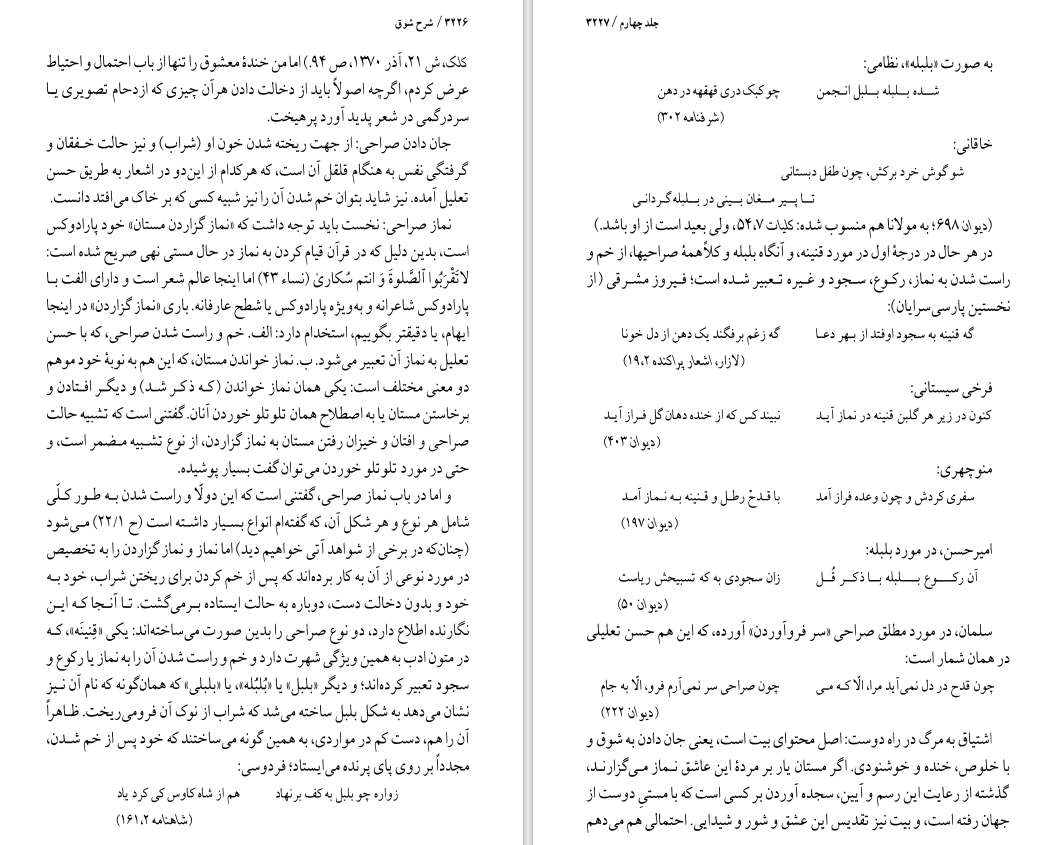 ۳۲۲۶ / شرح شوق
کلک، ش ۲۱، آذر ۱۳۷۰، ص ۹۴.) اما من خندهٔ معشوق را تنها از باب احتمال و احتیاط
عرض کردم، اگرچه اصولاً باید از دخالت دادن هرآن چیزی که ازدحام تصویری یا
سردرگمی در شعر پدید آورد پرهیخت.
جان دادن صراحی: از جهت ریخته شدن خون او (شراب) و نیز حالت خفقان و
گرفتگی نفس به هنگام قلقل آن است، که هرکدام از این‌دو در اشعار به طریق حسن
تعلیل آمده. نیز شاید بتوان خم شدن آن را نیز شبیه کسی که بر خاک می‌افتد دانست.
نماز صراحی: نخست باید توجه داشت که «نماز گزاردن مستان» خود پارادوکس
است، بدین دلیل که در قرآن قیام کردن به نماز در حال مستی نهی صریح شده است:
لاتَقْرَبُوا الصَّلوةَ وَ انتم سُکاریٰ (نساء ۴۳) اما اینجا عالم شعر است و دارای الفت با
پارادوکس شاعرانه و به‌ویژه پارادوکس یا شطح عارفانه. باری «نماز گزاردن» در اینجا
ایهام، یا دقیقتر بگوییم، استخدام دارد: الف. خم و راست شدن صراحی، که با حسن
تعلیل به نماز آن تعبیر می‌شود. ب. نماز خواندن مستان، که این هم به نوبهٔ خود موهم
دو معنی مختلف است: یکی همان نماز خواندن (که ذکر شد) و دیگر افتادن و
برخاستن مستان یا به اصطلاح همان تلوتلو خوردن آنان. گفتنی است که تشبیه حالت
صراحی و افتان و خیزان رفتن مستان به نماز گزاردن، از نوع تشبیه مضمر است، و
حتی در مورد تلوتلو خوردن می‌توان گفت بسیار پوشیده.
و اما در باب نماز صراحی، گفتنی است که این دولّا و راست شدن به طور کلّی
شامل هر نوع و هر شکل آن، که گفته‌ام انواع بسیار داشته است (ح ۲۲/۱) می‌شود
(چنان‌که در برخی از شواهد آتی خواهیم دید) اما نماز و نماز گزاردن را به تخصیص
در مورد نوعی از آن به کار برده‌اند که پس از خم کردن برای ریختن شراب، خود به
خود و بدون دخالت دست، دوباره به حالت ایستاده برمی‌گشت. تا آنجا که این
نگارنده اطلاع دارد، دو نوع صراحی را بدین صورت می‌ساخته‌اند: یکی «قِنینَه»، که
در متون ادب به همین ویژگی شهرت دارد و خم و راست شدن آن را به نماز یا رکوع و
سجود تعبیر کرده‌اند؛ و دیگر «بلبل» یا «بُلبُله»، یا «بلبلی» که همان‌گونه که نام آن نیز
نشان می‌دهد به شکل بلبل ساخته می‌شد که شراب از نوک آن فرومی‌ریخت. ظاهراً
آن را هم، دست کم در مواردی، به همین گونه می‌ساختند که خود پس از خم شدن،
مجدداً بر روی پای پرنده می‌ایستاد؛ فردوسی:
زواره چو بلبل به کف برنهاد هم از شاه کاوس کی کرد یاد
(شاهنامه ۱۶۱،۲)
جلد چهارم / ۳۲۲۷
به صورت «بلبله»، نظامی:
شده بلبله بلبل انجمن چو کبک دری قهقهه در دهن
(شرفنامه ۳۰۲)
خاقانی:
شو گوش خرد برکش، چون طفل دبستانی
تا پیر مغان بینی در بلبله‌گردانی
(دیوان ۶۹۸؛ به مولانا هم منسوب شده: کلیات ۵۴،۷، ولی بعید است از او باشد.)
در هر حال در درجهٔ اول در مورد قنینه، و آنگاه بلبله و کلاً همهٔ صراحیها، از خم و
راست شدن به نماز، رکوع، سجود و غیره تعبیر شده است؛ فیروز مشرقی (از
نخستین پارسی‌سرایان):
گه قنینه به سجود اوفتد از بهر دعا گه زغم برفگند یک دهن از دل خونا
(لازار، اشعار پراکنده ۱۹،۲)
فرخی سیستانی:
کنون در زیر هر گلبن قنینه در نماز آید نبیند کس که از خنده دهان گل فراز آید
(دیوان ۴۰۳)
منوچهری:
سفری کردش و چون وعده فراز آمد با قدحْ رطل و قنینه به نماز آمد
(دیوان ۱۹۷)
امیرحسن، در مورد بلبله:
آن رکوع بلبله با ذکر قُل زان سجودی به که تسبیحش ریاست
(دیوان ۵۰)
سلمان، در مورد مطلق صراحی «سر فروآوردن» آورده، که این هم حسن تعلیلی
در همان شمار است:
چون قدح در دل نمی‌آید مرا، الّا که می چون صراحی سر نمی‌آرم فرو، الّا به جام
(دیوان ۲۲۲)
اشتیاق به مرگ در راه دوست: اصل محتوای بیت است، یعنی جان دادن به شوق و
با خلوص، خنده و خوشنودی. اگر مستان یار بر مردهٔ این عاشق نماز می‌گزارند،
گذشته از رعایت این رسم و آیین، سجده آوردن بر کسی است که با مستیِ دوست از
جهان رفته است، و بیت نیز تقدیس این عشق و شور و شیدایی. احتمالی هم می‌دهم